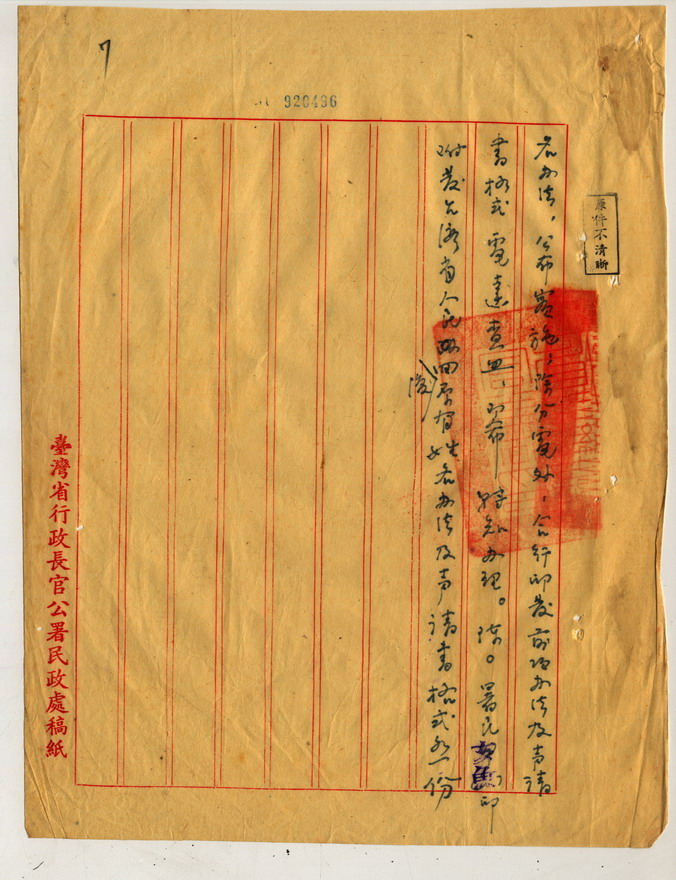 7
920496
原件不清晰
名办法,公布實施,除分電外,合行印發前項办法及声請
書格式電達查照,即希轉知办理。陳。署民 印
附發台灣省人民回復原有姓名办法及声請書格式各一份
臺灣省行政長官公署民政處稿紙